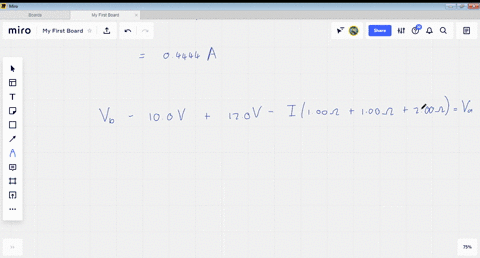 Miro
Boards
My First Board
miro
My First Board
Share
= 0.4444 A
V_b - 10.0V + 12.0V - I(1.00Ω + 1.00Ω + 2.00Ω) = V_a
75%